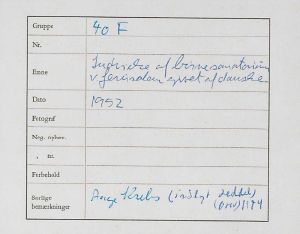 Gruppe 40 F
Nr.
Emne Indvielse af børnesanatorium
v. Jerusalem af danske
Dato 1952
Fotograf
Neg. nr.
Forbehold
Særlige bemærkninger Aage Krebs (indlagt seddel)
1974